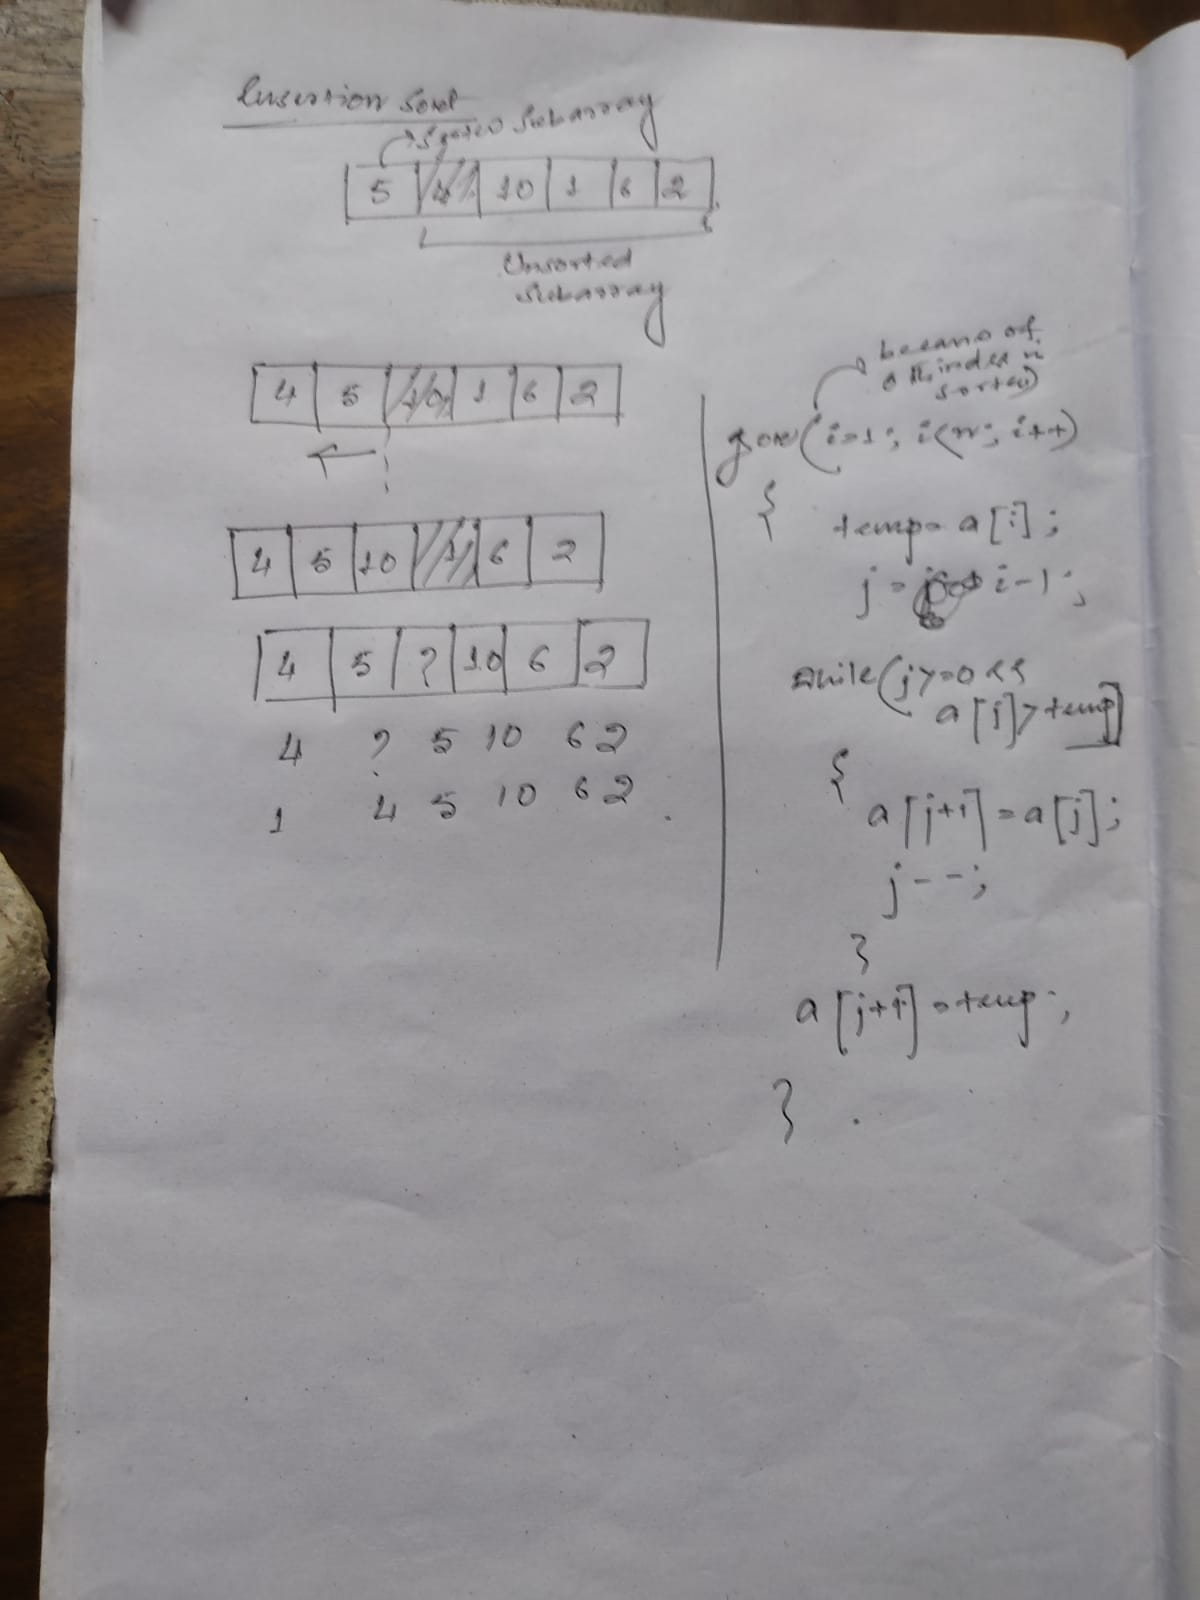 Insertion Sort
Sorted Subarray
5 4 10 1 6 2
Unsorted
Subarray
4 5 10 1 6 2
4 5 10 1 6 2
4 5 ? 10 6 2
4 ? 5 10 6 2
1 4 5 10 6 2
of
0 th index is
sorted
for(i=1; i<n; i++)
{
temp= a[i];
j = i-1;
while(j>=0 &&
a[j]>temp)
{
a[j+1]=a[j];
j--;
}
a[j+1]=temp;
}